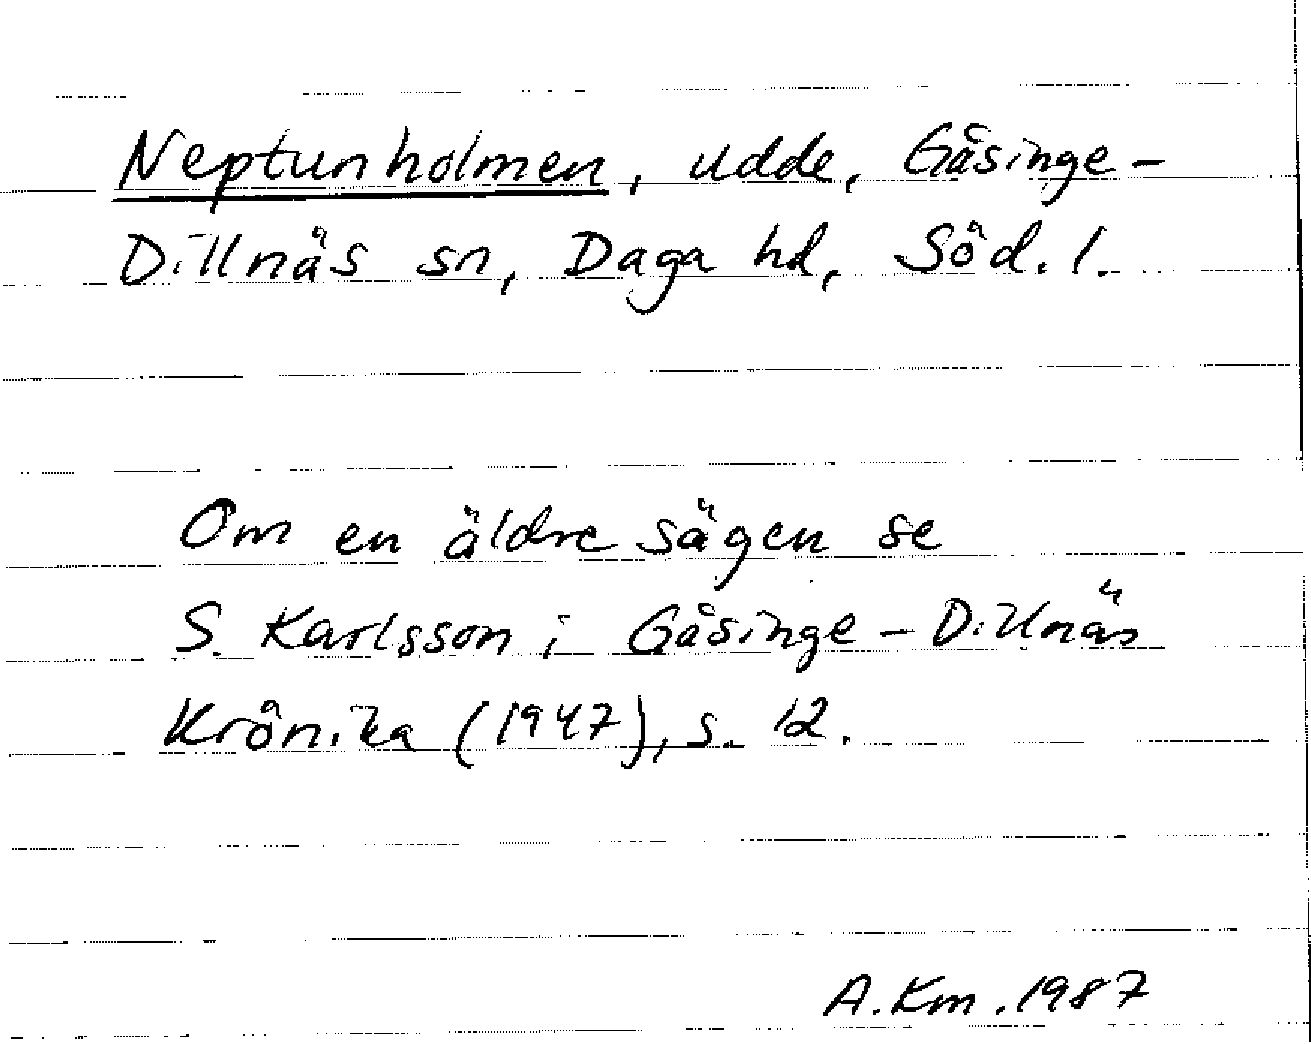 Neptunholmen, udde, Gåsinge-
Dillnäs sn, Daga hd, Söd. l.
Om en äldre sägen se
S. Karlsson i Gåsinge-Dillnäs
Krönika (1947), s. 12.
A.Km. 1987